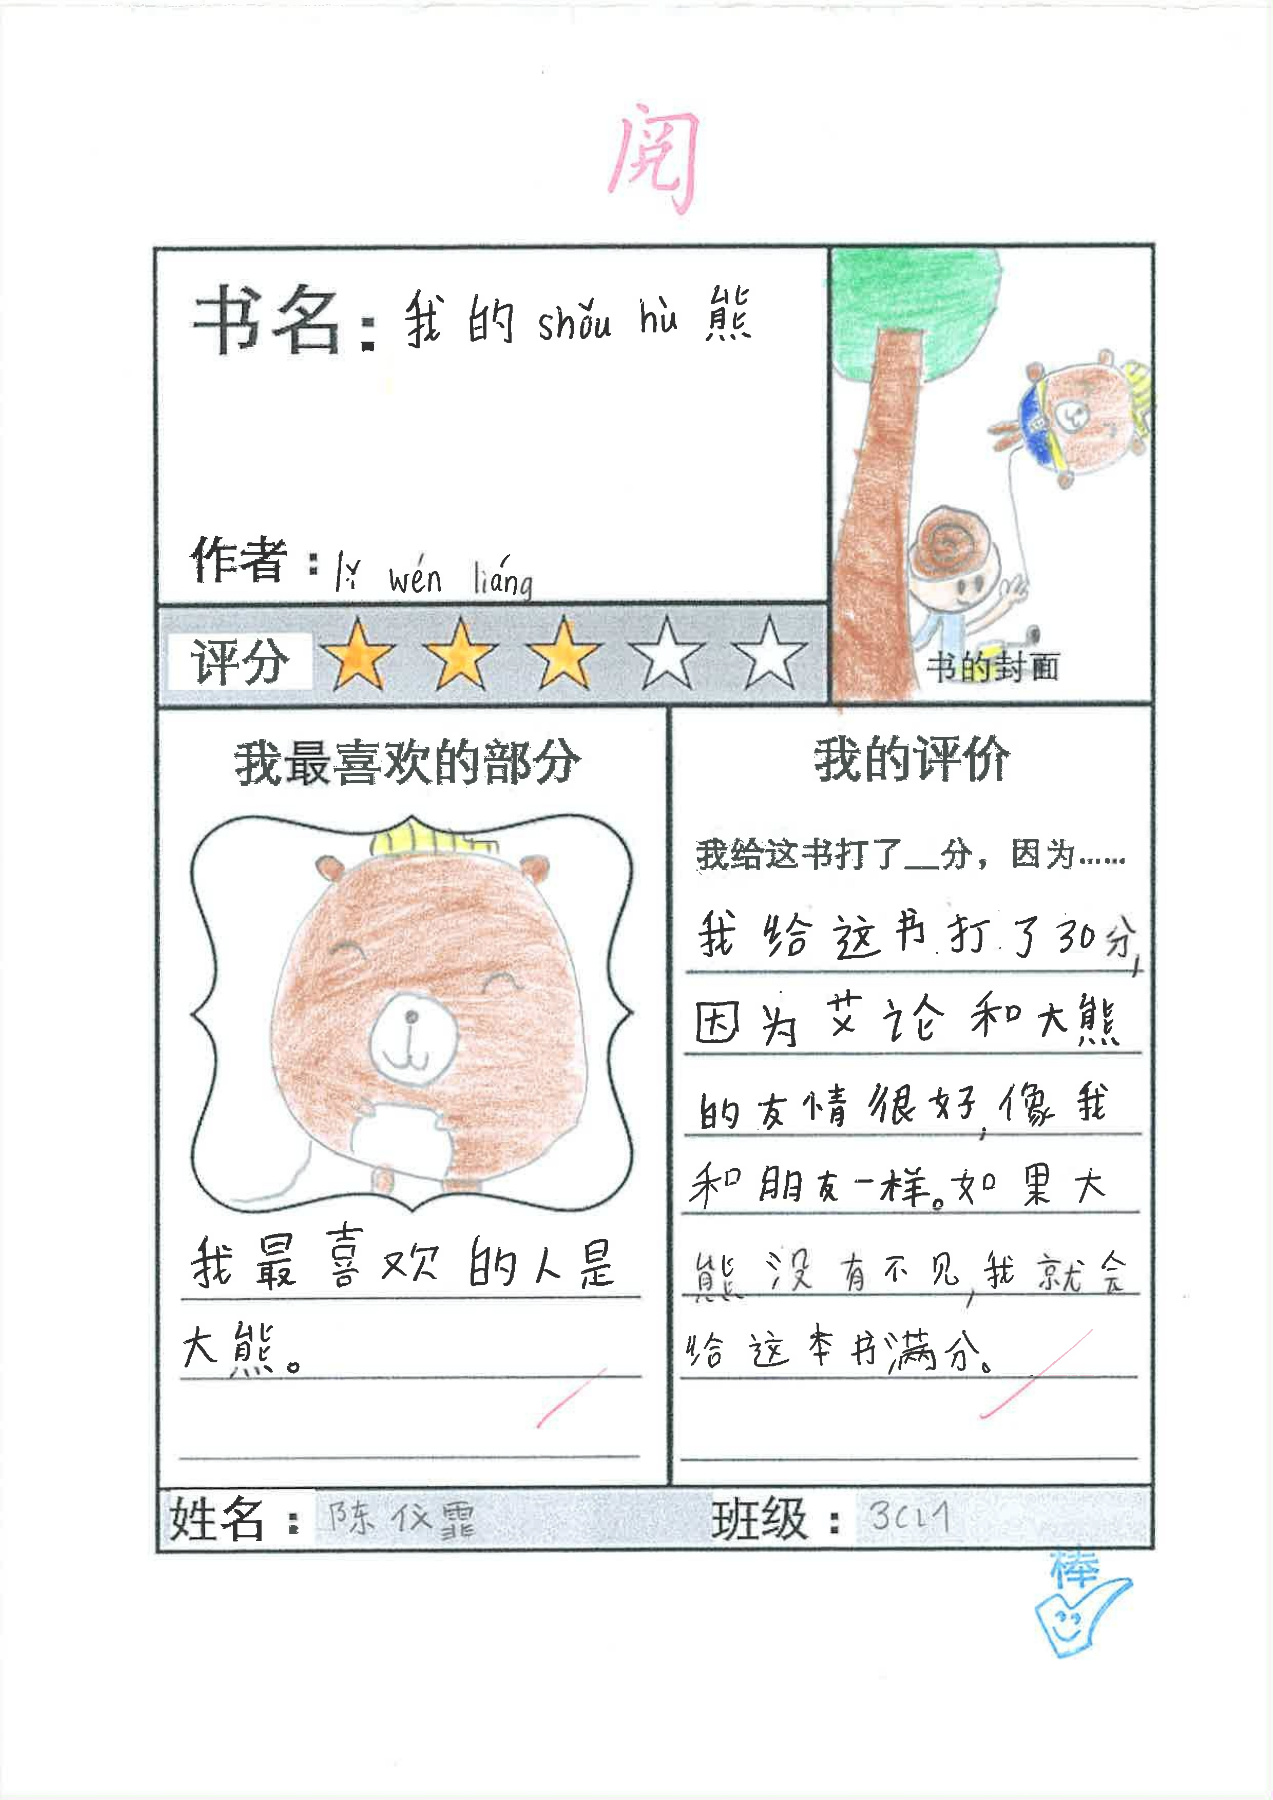 阅
书名：我的 shǒu hù 熊
作者：lǐ wén liáng
评分
书的封面
我最喜欢的部分
我最喜欢的人是
大熊。
我的评价
我给这书打了__分，因为……
我给这书打了30分，
因为艾论和大熊
的友情很好，像我
和朋友一样。如果大
熊没有不见，我就会
给这本书满分。
姓名：陈仪霏 班级：3CL1
棒